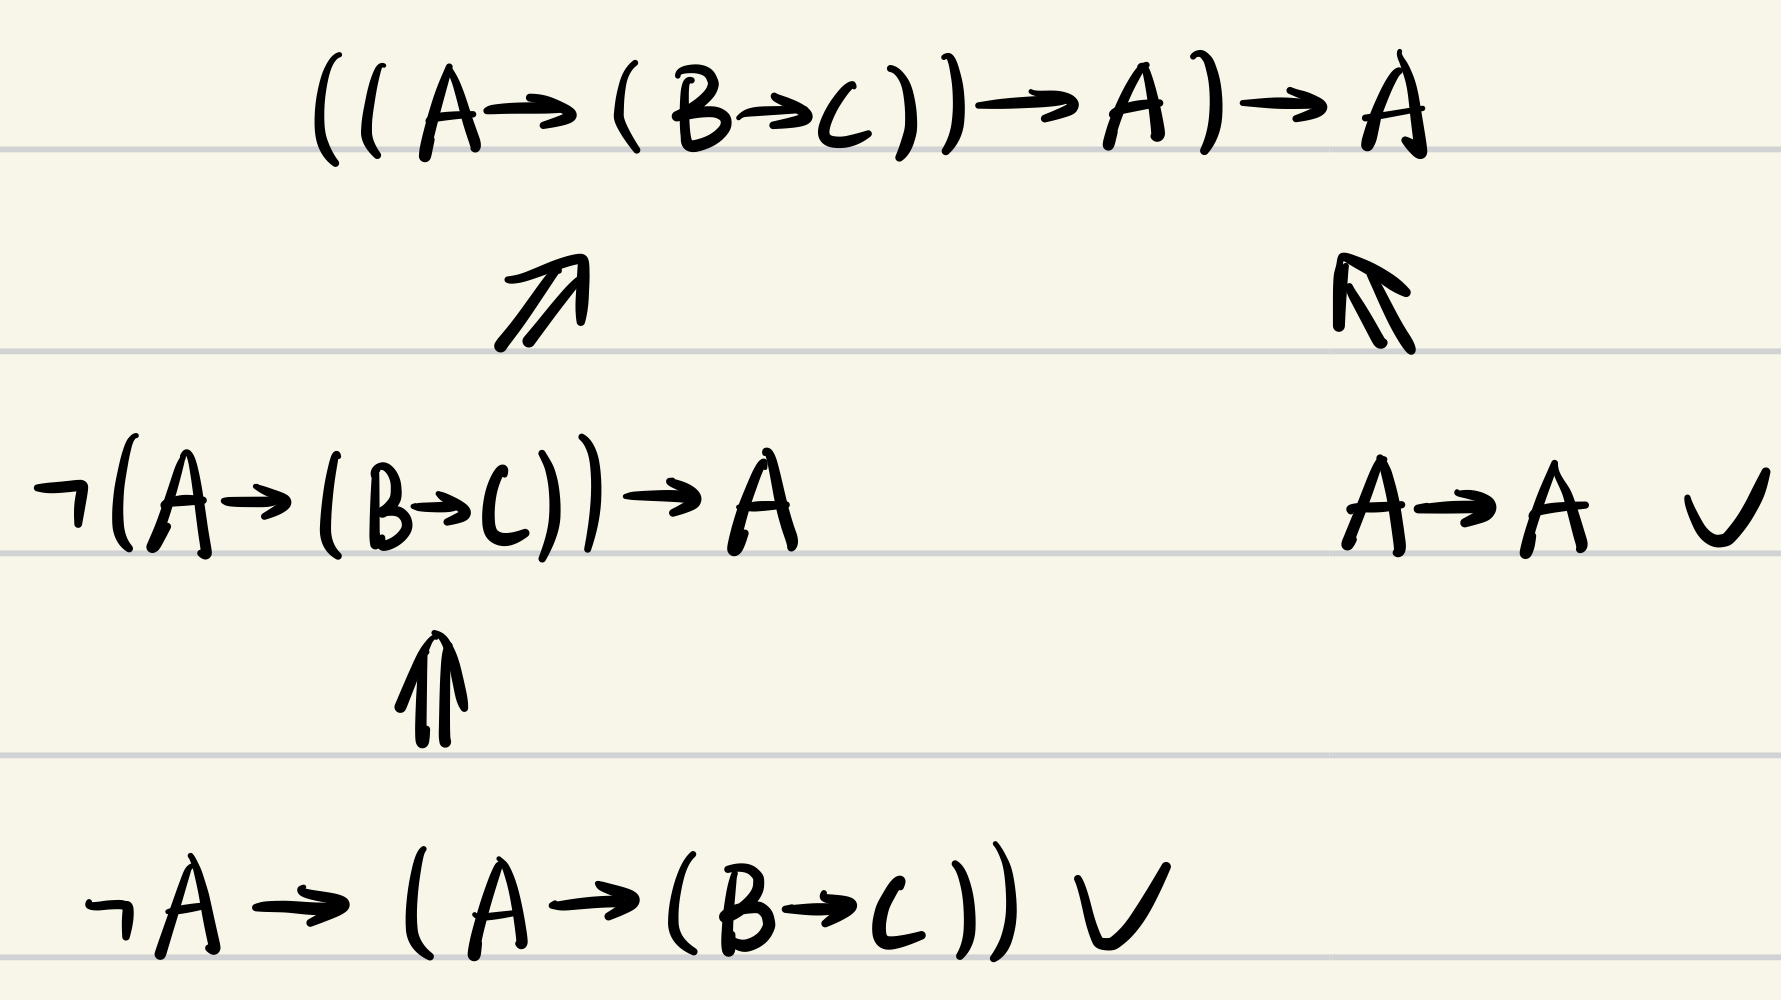 ((A→(B→C))→A)→A
⇗ ⇖
¬(A→(B→C))→A A→A ✓
⇑
¬A→(A→(B→C)) ✓